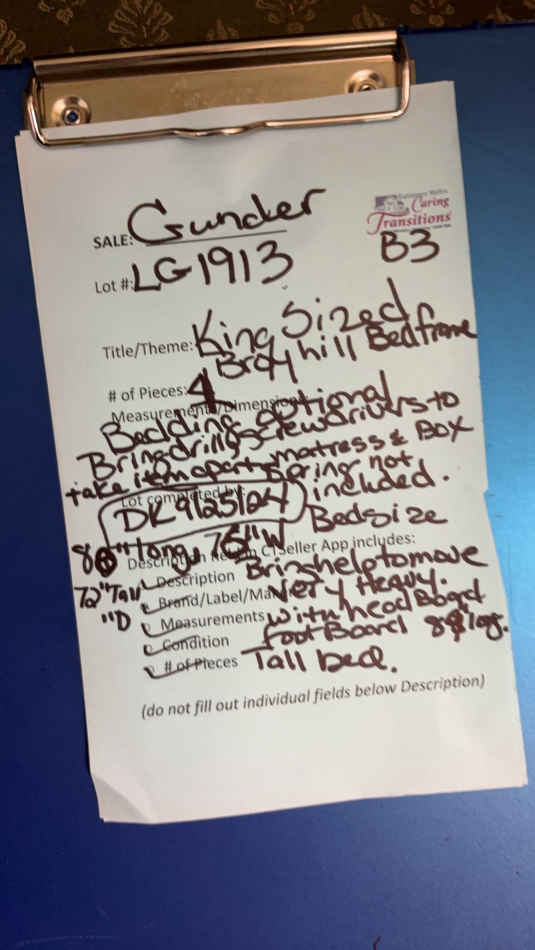 Caring
Transitions
SALE: Gunder
B3
Lot #: LG1913
Title/Theme: King Sized
Broyhill Bedframe
# of Pieces: 4
Measurements/Dimensions:
Bedding optional
Bring drill/screwdrivers to
take item apart matress & Box
Spring not
included.
Lot completed by:
DK 9/25/24
Bedsize
80" long, 76" W
72" Tall
"D
Description in CTSeller App includes:
Description Bring help to move
Brand/Label/Maker Very Heavy.
Measurements with head Board
Condition foot Board long.
# of Pieces Tall bed.
(do not fill out individual fields below Description)